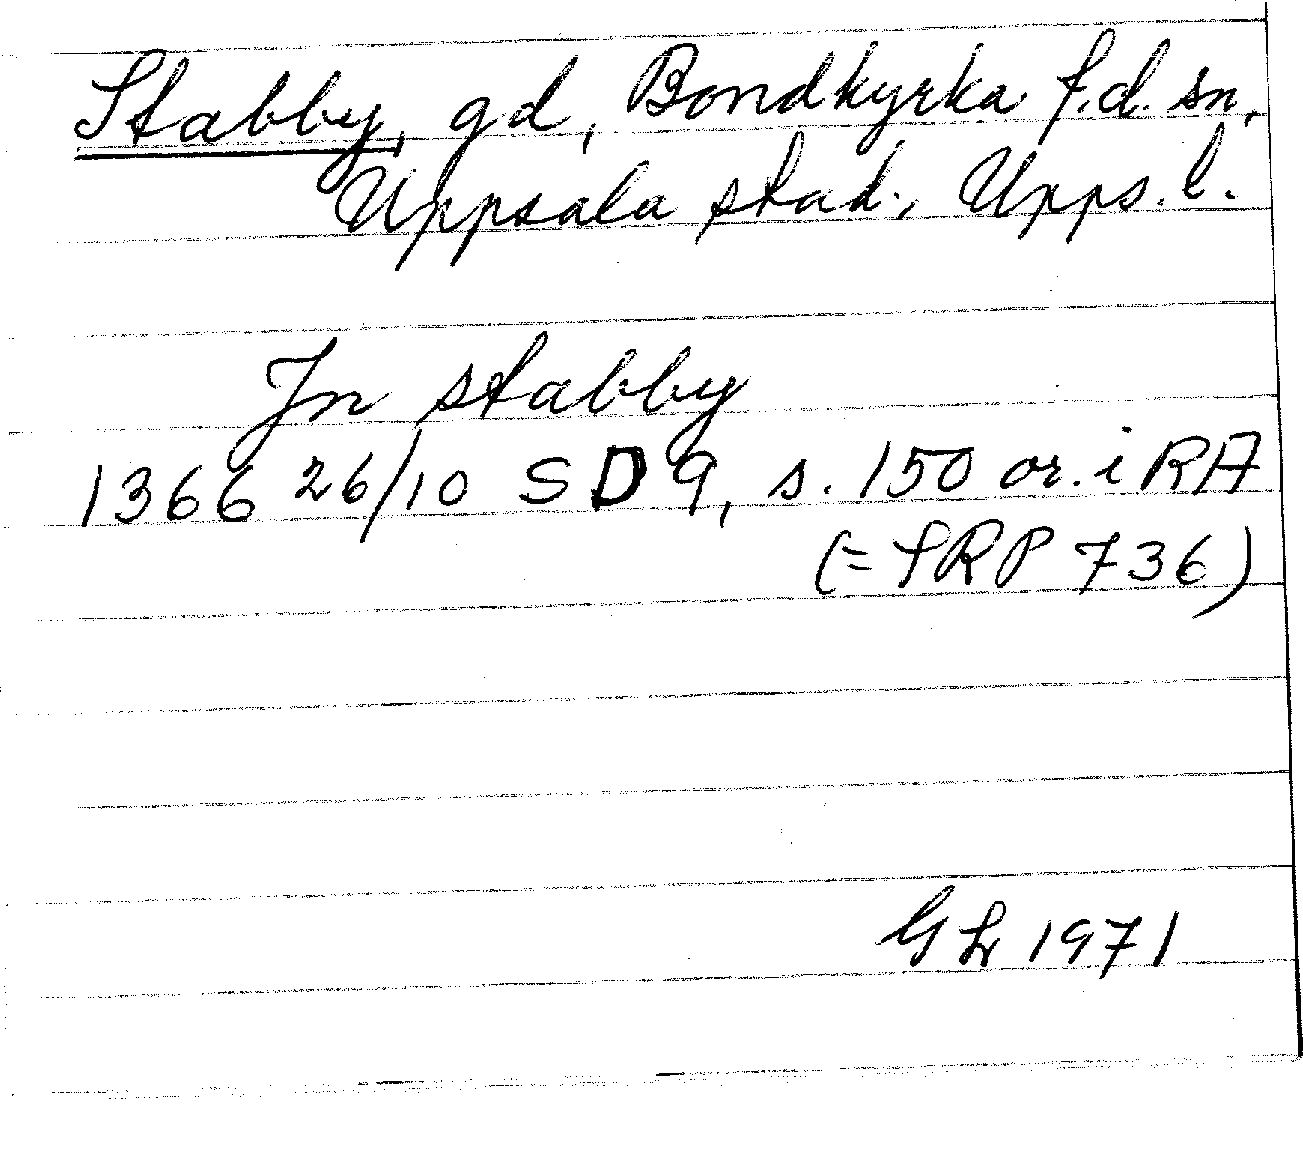 Stabby, gd, Bondkyrka f.d. sn,
Uppsala stad, Upps. l.
Jn stabby
1366 26/10 SD 9, s. 150 or. i RA
(= SRP 736)
GL 1971